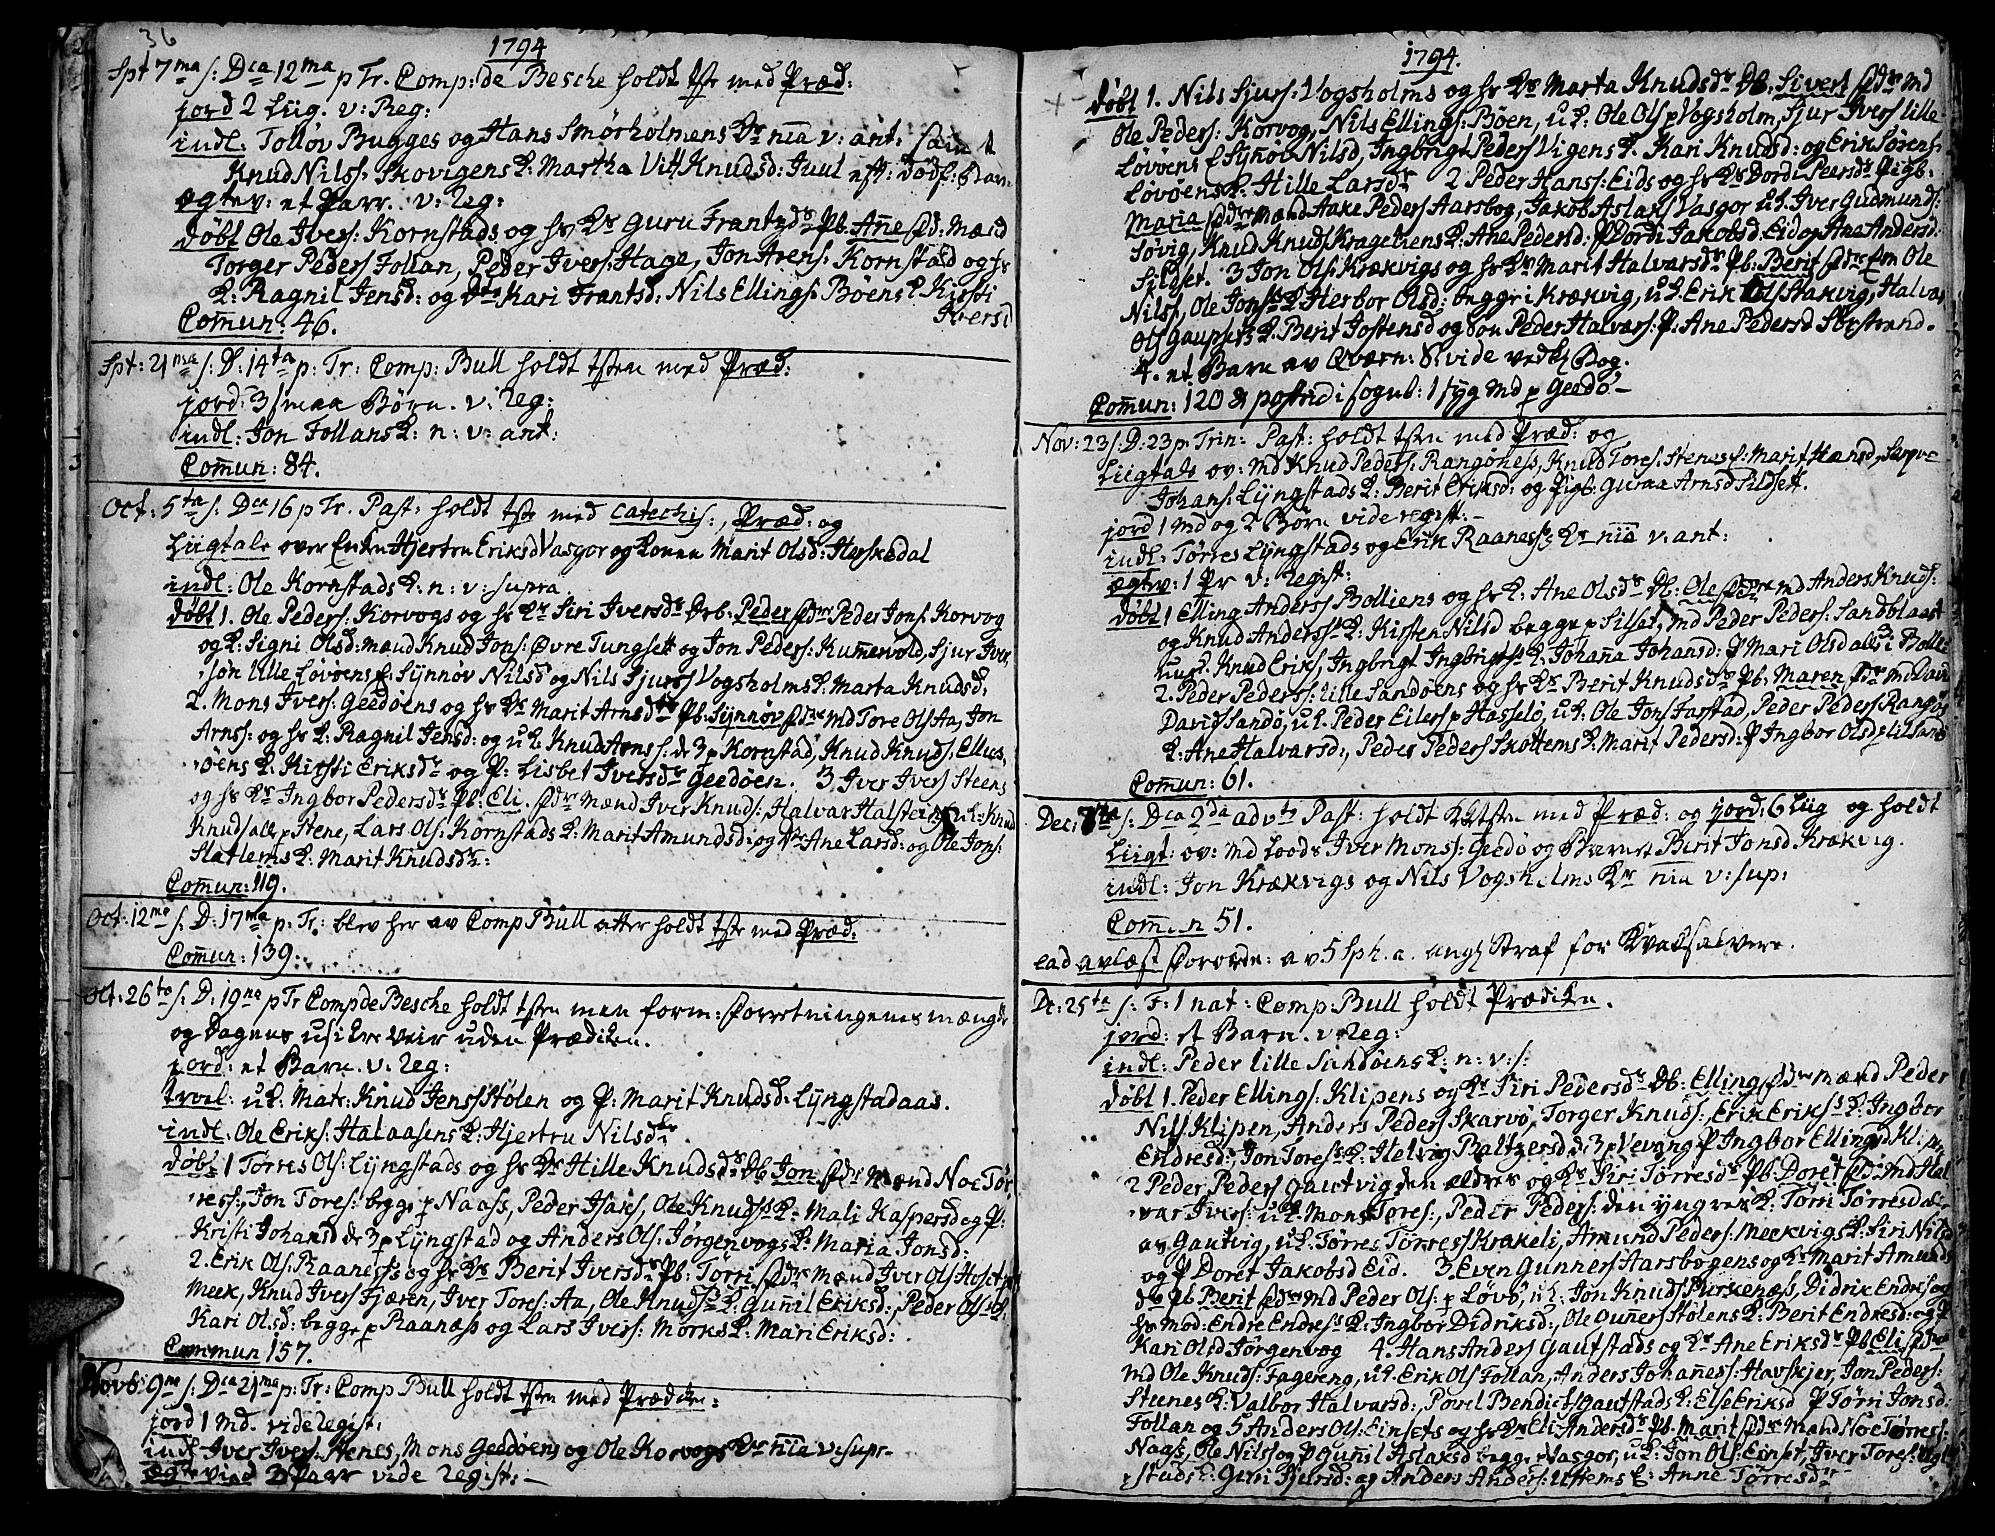 36
1794
Spt 7ma s: Dca 12ma p Tr. Comp: de Besche holdt tste med Præd:
jord 2 Liig. v: Reg:
indl: Tolløv Bugges og Hans Smørholmens Kr nia v: ant:
Knud Nilss: Skovigens K: Martha Vitt Knudsd: Juul eft: dødf: Barn
ægtev: et Parr. v: Reg:
døbt Ole Ivers: Kornstads og hs Kr Guru Frantzdr Pb. Ane fd: Mænd
Torger Peders Follan, Peder Ivers: Hage, Jon Arens: Kornstad og hs
K: Ragnil Jensd: og Kari Frantsd: Nils Ellings: Böens K Kirsti
Iversd
Comun: 46.
Spt: 21ma s: D: 14ta p: Tr: Comp: Bull holdt tsten med Præd:
jord: 3 smaa Børn. v: Reg:
indl: Jon Follans K: n: v: ant:
Comun: 84.
Oct: 5ta s: Dca 16 p Tr. Past: holdt tste med Catechis:, Præd: og
Liigtale over Enken Hjertru Eriksd Vasgor og Konen Marit Olsd: Herskedal
indl: Ole Kornstads K: n: v: supra
døbt 1. Ole Peders: Korvogs og hs Kr Siri Iversdr Drb: Peder fdre Peder Jons Korvog
og K: Signi Olsd: mænd Knud Jons: Øvre Tungsett og Jon Peders: Kumervold, Sjur Iver
søn Lille Løvöens K Synnøv Nilsd og Nils Sjurss Vogsholms K: Marta Knudsd:
2. Mons Ivers: Geedøens og hs Kr Marit Arnsdr Pb: Synnøv fdre Md Tore Ols Aa, Jon
Arnss: og hs K: Ragnil Jensd: og u K: Knud Arns: de 3 p Kornstad, Knud Knuds: Ellus
öens K: Kirsti Eriksdr og P: Lisbet Iversdr Geedøen. 3 Iver Ivers Steens
og hs Kr Ingbor Pedersdr Pb: Eli. fdre Mænd Iver Knuds: Halvar Halsteins, u K: Knud
Knuds alle p Stene, Lars Ols: Kornstads K: Marit Amundsd: og Ane Larsd: og Ole Jons:
Slatlems K: Marit Knudsdr:
Comun: 119.
Oct: 12ma s: D: 17ma p: Tr: blev her av Comp Bull atter holdt tste med Præd:
Comun: 139.
Oct: 26ta s: D: 19na p Tr Comp de Besche holdt tsten men form: Forretningenes mængde
og Dagens usikre Veir uden Prædiken.
jord: et Barn. v: Reg:
trol: u K: Matr: Knud Jenss Stølen og P: Marit Knudsd: Lyngstadaas.
indl: Ole Eriks: Halaasens K: Hjertru Nilsdr.
døbt 1 Tørres Ols: Lyngstads og hs Kr Hille Knudsdr Db Jon fdr Mænd Noe Tør
ress: Jon Tores: begge p Naass, Peder Isacs, Ole Knudss K: Mali Kaspersd og P:
Kristi Johansd de 3 p Lyngstad og Anders Ols: Jørgenvogs K: Maria Jonsd:
2. Erik Ols: Raaness's og hs Kr Berit Iversdr Pb: Torri fdre Mænd Iver Ols Hoset p
Meek, Knud Ivers Fjæren, Iver Tores: Aa, Ole Knuds K: Gunil Eriksd:, Peder Ols K:
Kari Olsd: begge p Raanæss og Lars Ivers: Mørks K: Mari Eriksd:
Commun 157.
Novb: 9na s: Dca 21ma p: Tr: Comp Bull holdt tsten med Prædiken:
jord 1 Md. vide Regist:
indl Iver Ivers: Stenes, Mons Geedøens og Ole Korvogs Kr nia v: supr
ægteviede 2 Parr vide Regist:
1794.
døbt 1. Nils Sjurs: Vogsholms og hs Kr Marta Knudsdr Db. Sivert fdre Md
Ole Peders: Korvog, Nils Ellings: Böen, u K: Ole Ols p Vogsholm, Sjur Ivers lille
Løvöens K Synöv Nilsd, Ingbrigt Peders Vigens K. Kari Knudsd: og Erik Sörens:
Løvöens K: Hille Larsdr 2 Peder Hanss: Eids og hs Kr Dordi Peersdr Pigb:
Maria fdre Mænd Aake Peders Aarsbog, Jakob Aslaks Vasgor u K. Iver Gudmunds:
Søvig, Knud Knuds Kragetiens K: Ane Pedersd: P Dordi Jakobsd. Eid og Ane Andersd
Silset. 3 Jon Ols: Krækvigs og hs Kr Marit Halvarsdr Pb: Berit fdre Em Ole
Nilss, Ole Jonss K Herbor Olsd: begge i Krækvig, u K. Erik Ols Stakvig, Halvar
Ols Gaupsets K: Berit Jostensd og Son Peder Halvars: P: Ane Pedersd Storstrand.
4. et Barn av Qværn: S: vide vedk: Bog.
Comun: 120 & postrid i sogneb: 1 syg Md p Geedö
Nov: 23 s: D: 23 p: Trin: Past: holdt tsten med Præd: og
Liigtale ov: Md Knud Peders: Rangöness, Knud Tores: Stenes K: Marit Hansd,
Johans: Lyngstads K: Berit Eriksd: og Pigb. Guraa Arnsd Sildsett.
jord 1 Md og 2 Börn vide regist:
indl: Tørres Lyngstads og Erik Raaness: Kr nia v: ant:
ægtev: 1 Pr v: Regist:
døbt 1 Elling Anderss Bolliens og hs K: Ane Olsdr Db: Ole fdre Md Anders Knuds:
og Knud Anderss K: Kirsten Nilsd begge p Silset, Md Peder Peders: Sandblaast
u K. Knud Eriks, Ingbrigt Ingbrigts K: Johana Johansd: P Mari Olsd alle i Bolli
2. Peder Peders: Lille Sandöens og hs Kr Berit Knudsdr Pb: Maren fdr Md David
Davids Sandö, u K. Peder Eilers p Hasselö, u K: Ole Jons Farstad, Peder Peders Rangö
K: Ane Halvarsd:, Peder Peders Skottems K: Marit Pedersd: P Ingbor Olsd lill Sandö
Comun: 61.
Dec: 7ma s: Dca 2da advts Past: holdt tsten med Præd: og jord: 6 Liig og holdt
Liigt: ov: Md Loods Iver Mons: Geedö og Barnet Berit Jonsd Krækvig.
indl: Jon Krækvigs og Nils Vogsholms Kr nia v: sup:
Comun 51.
ead avlæst Forordn: av 5 Sph. a. ang Straf for Kvaksalvere.
De: 25ta s: F: 1 nat: Comp: Bull holdt Prædiken.
jord: et Barn. v: Reg:
indl: Peder lille Sandöens K: n: v: s:
døbt 1. Peder Ellings: Klipens og Kr Siri Pedersdr Db: Elling fdre mænd Peder
Nils Klipen, Anders Peders Skarvö, Torger Knuds:, Erik Eriks K: Ingbor
Endresd:, Jon Tores K: Helvig Baltzersd de 3 p Vevang P Ingbor Ellingsd Kl:
2 Peder Peders Gautvig den ældres og Kr Siri Tørresdr Pb: Doret fdr Md Hal
var Ivers: u K. Mons Tores:, Peder Peders: den yngres K: Torri Tørresd alle
av Gautvig, u K: Tørres Tørress Krakeli, Amund Peders: Meekvigs K: Siri Nilsd
og P Doret Jakobsd Eid. 3. Even Gunners Aarsbogens og Kr Marit Amunds
dr Pb Berit fdre Md Peder Ols: p Løvö, u K: Jon Knuds Purkenæss, Didrik Endres og
hs Mod: Endre Endress K: Ingbor Didriksd:, Ole Guners Stølens K: Berit Endresd: og P
Kari Olsd Jørgenvog 4. Hans Anders Gautstads og Kr Ane Eriksdr Pb Eli fdre
Md Ole Knuds: Fagereng, u K. Erik Ols Follan, Anders Johanes: Havskjer, Jon Peders:
Steenes K: Valbor Halvarsd:, Povel Bendicts Gautstads K: Else Eriksd P Törri Jonsd:
Follan og 5 Anders Ols: Einsets og hs Kr Eli Andersdr Pb. Marit fdre Mænd Noe Tørres:
Naas, Ole Nilsson, P Gunil Aslaksd begge p Vasgor, u K. Jon Ols Einset, Iver Tores:
stads K: Guri Sjursd: og Anders Anders: Uttems K: Anne Torresdr